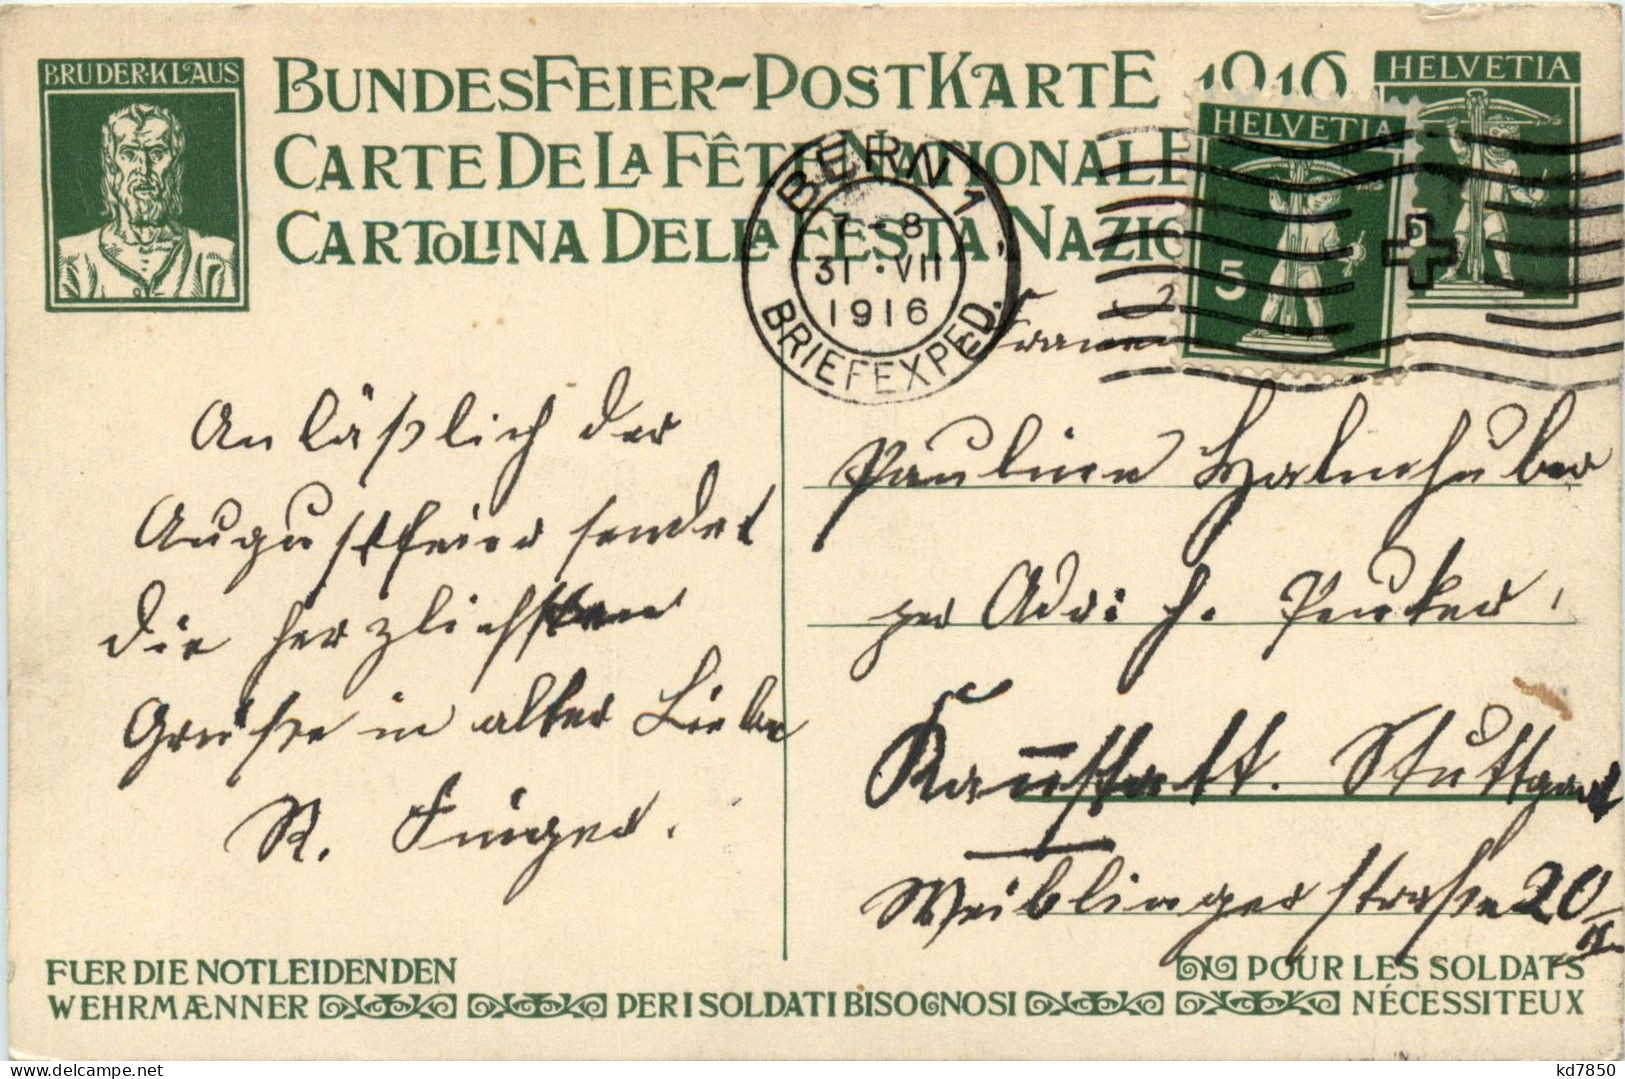 BRUDER·KLAUS
BUNDESFEIER-POSTKARTE 1916
HELVETIA
CARTE DE LA FÊTE NATIONALE
HELVETIA
CARTOLINA DELLA FESTA NAZIO
5
BERN 1
7-8
31·VII
1916
BRIEFEXPED.
Anläßlich der
Augustfeier sendet
die herzlichsten
Grüße in alter Liebe
R. Finger.
Pauline
per Adr: H.
Kannstatt. Stuttgart
Weiblingerstraße 20
FUER DIE NOTLEIDENDEN
WEHRMÆNNER
PER I SOLDATI BISOGNOSI
POUR LES SOLDATS
NÉCESSITEUX
kd7850